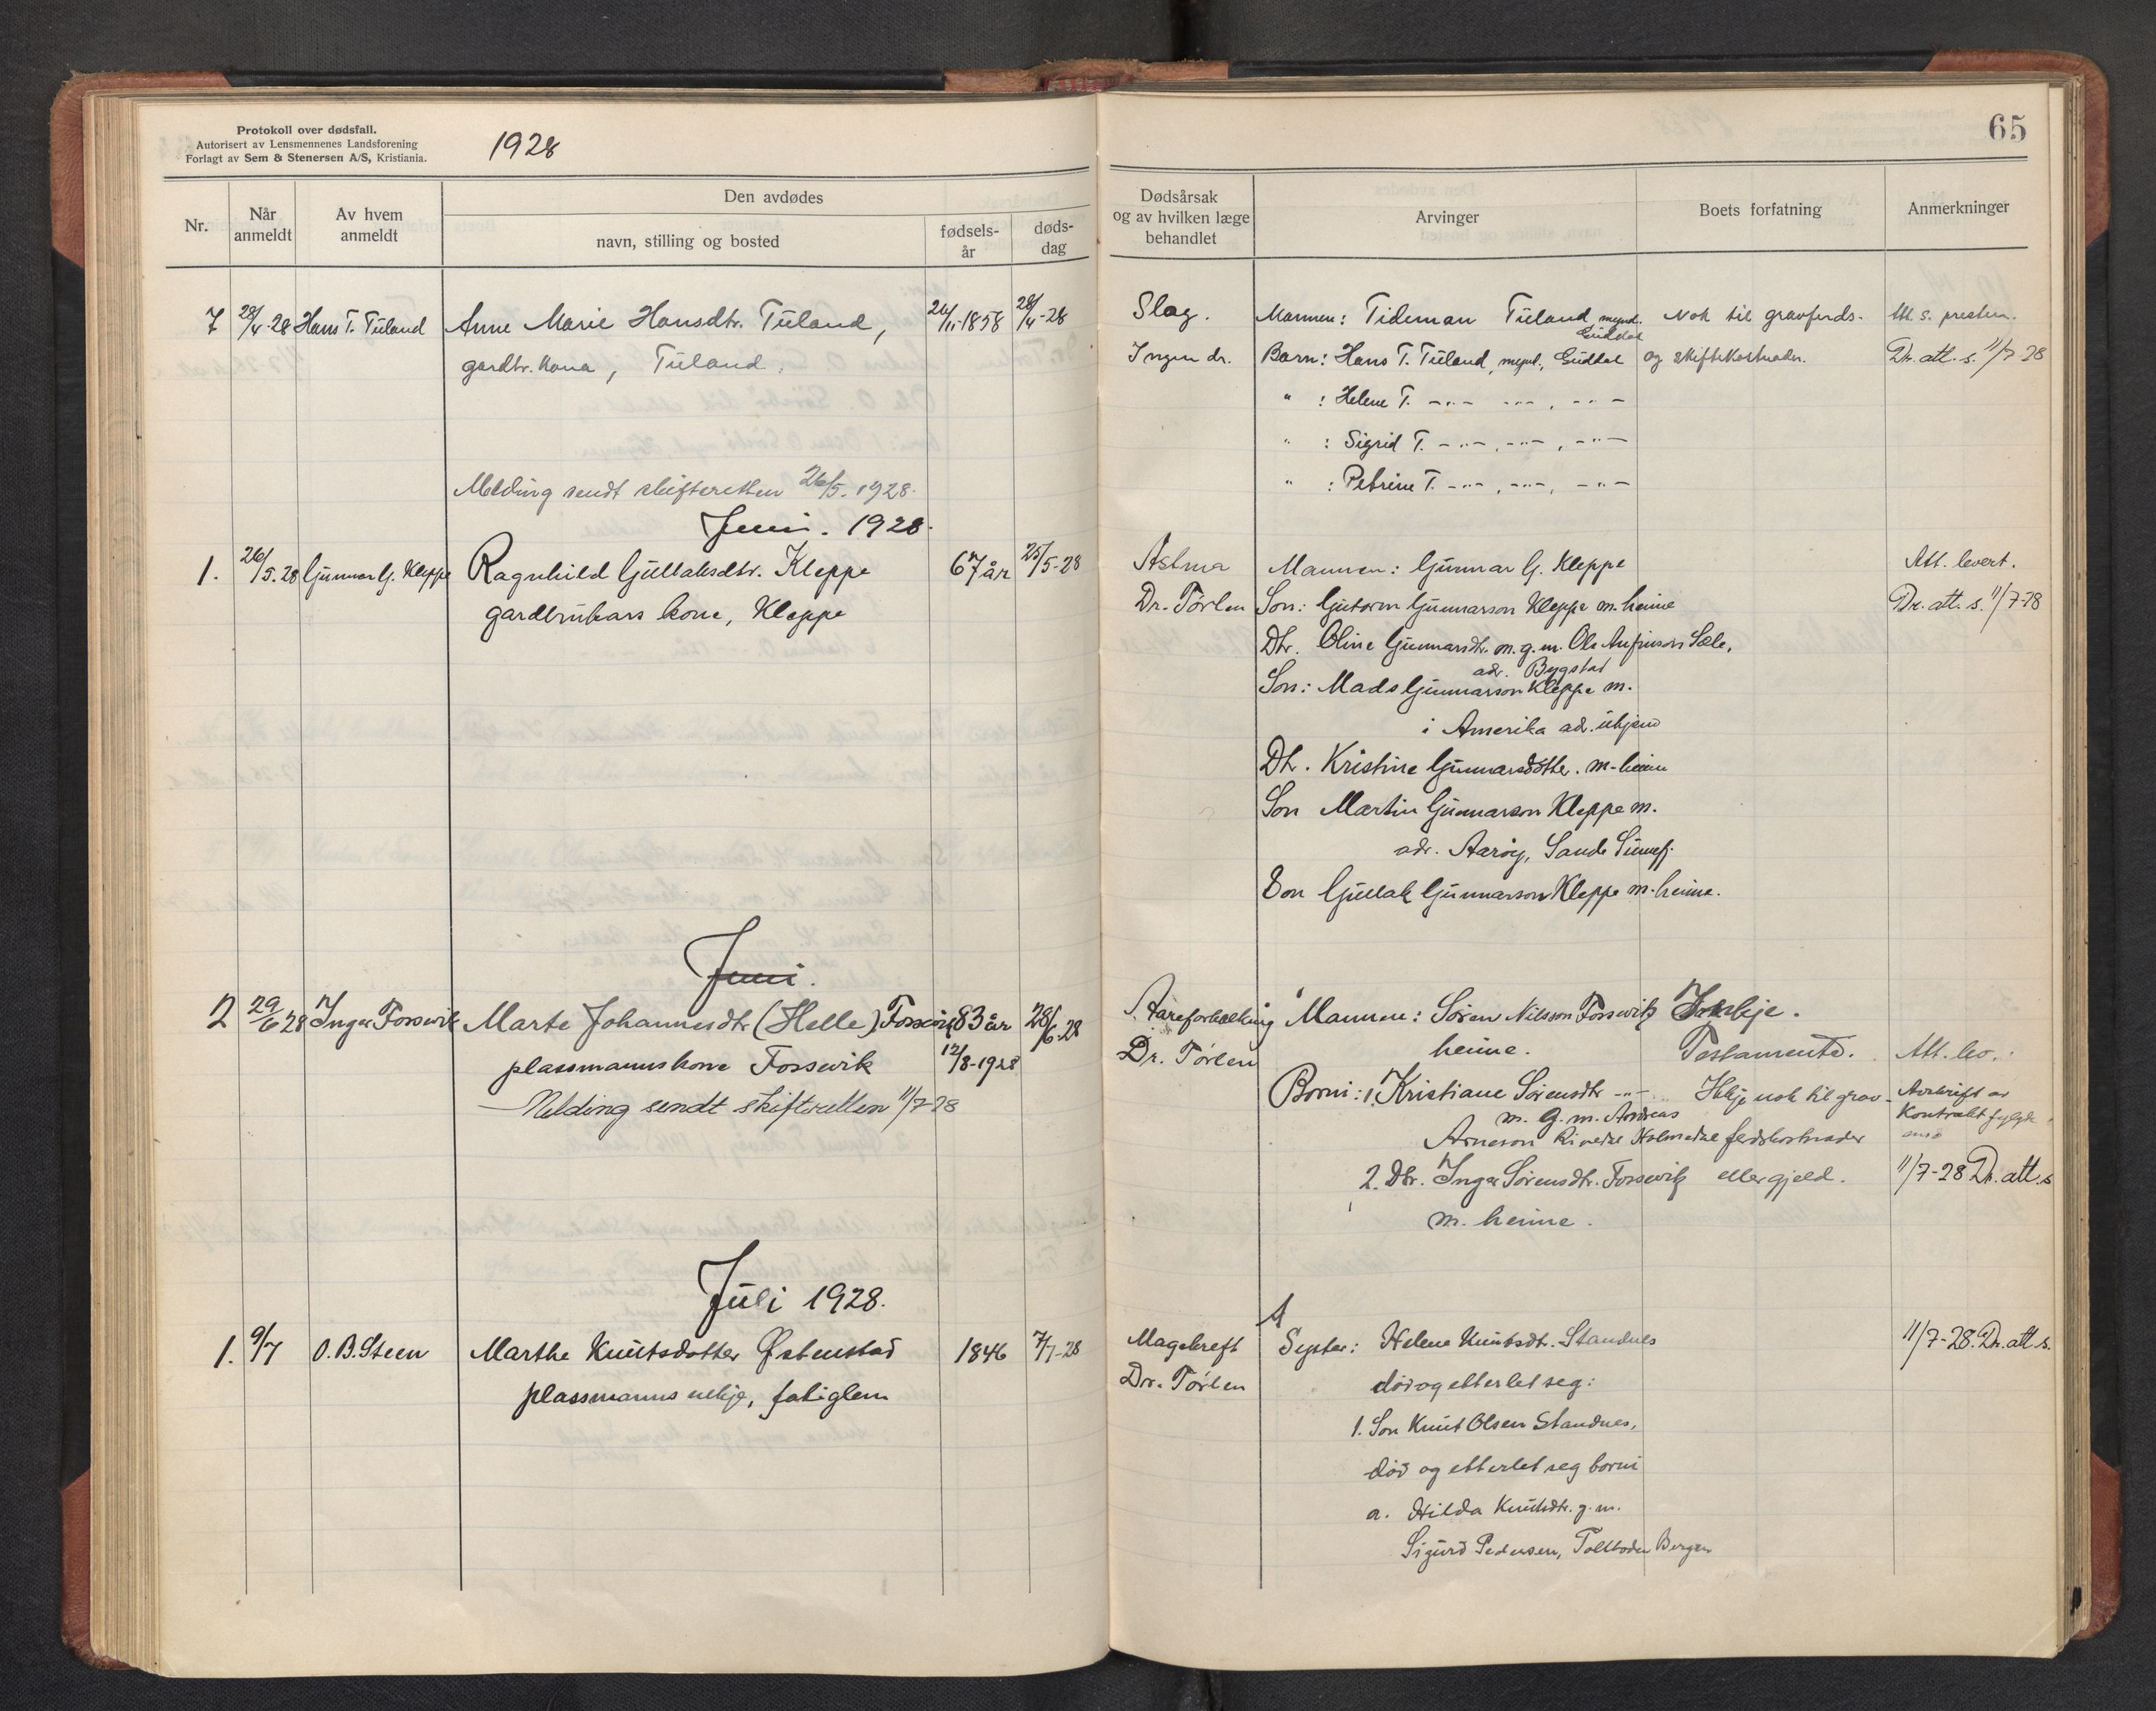 Protokoll over dødsfall.
Autorisert av Lensmennenes Landsforening
Forlagt av Sem & Stenersen A/S, Kristiania.
1928
65
Nr.
Når anmeldt
Av hvem anmeldt
Den avdødes
navn, stilling og bosted
fødsels-år
døds-dag
Dødsårsak og av hvilken læge behandlet
Arvinger
Boets forfatning
Anmerkninger
7 28/4-28 Hans T. Tüland Anne Marie Hansdtr. Tüland, 24/11-1858 28/4-28 Slag. Mannen: Tideman Tüland mynd. Nok til gravferds- Att. s. presten.
Güddal
gardbr. kona, Tüland. Ingen dr. Barn: Hans T. Tüland, mynd., Güddal og skiftekostnader. Dr. att. s. 11/7-28
" : Helene T. -"- -"-, -"-
" : Sigrid T. -"-, -"-, -"-
Melding sendt skifteretten 26/5. 1928. " : Petrine T. -"-, -"-, -"-
Juni. 1928.
1. 26/5.28 Gunnar G. Kleppe Ragnhild Güllaksdtr. Kleppe 67 år 25/5-28 Astma Mannen: Günnar G. Kleppe Att. levert.
gardbrükars kone, Kleppe Dr. Törlen Son: Gutorm Günnarson Kleppe m. heime Dr. att. s. 11/7-28
Dtr. Oline Günnarsdtr. m. g. m. Ole Anfinson Sæle,
adr. Bygstad
Son: Mads Günnarson Kleppe m.
i Amerika adr. ükjend
Dtr. Kristine Günnarsdotter. m. heime
Son Martin Günnarson Kleppe m.
adr. Aarøy, Sande Sünnfj.
Son Güllak Günnarson Kleppe m. heime.
Juni.
2 29/6 28 Inga Fossevik Marte Johannesdtr (Helle) Fossevik 83 år 28/6-28 Aareforkalkning Mannen: Søren Nilsson Fossevik Ikkje.
plassmanns kone Fossevik 12/8-1928 Dr. Törlen heime. Testamente. Att. lev.
Melding sendt skifteretten 11/7-28 Borni: 1. Kristiane Sørensdtr -"- Ikkje nok til grav- Avskrift av
m. g. m. Andreas Kontrakt fylgde
Arneson Rivedal Holmedal ferdskostnader
2. Dtr. Inga Sørensdtr. Fossevik eller gjeld. 11/7-28 Dr. att. s
m. heime.
Jüli 1928.
1. 9/7 O. B. Steen Marthe Knütsdotter Østenstad 1846 7/7-28 Magekreft Syster: Helene Knütsdtr. Standnes 11/7-28. Dr. att. s.
plassmanns enkje, fatiglem Dr. Törlen død og etterlet seg:
1. Son Knüt Olsen Standnes,
død og etterlet seg borni
a. Hilda Knütsdtr. g. m.
Sigürd Pedersen, Tollboden Bergen